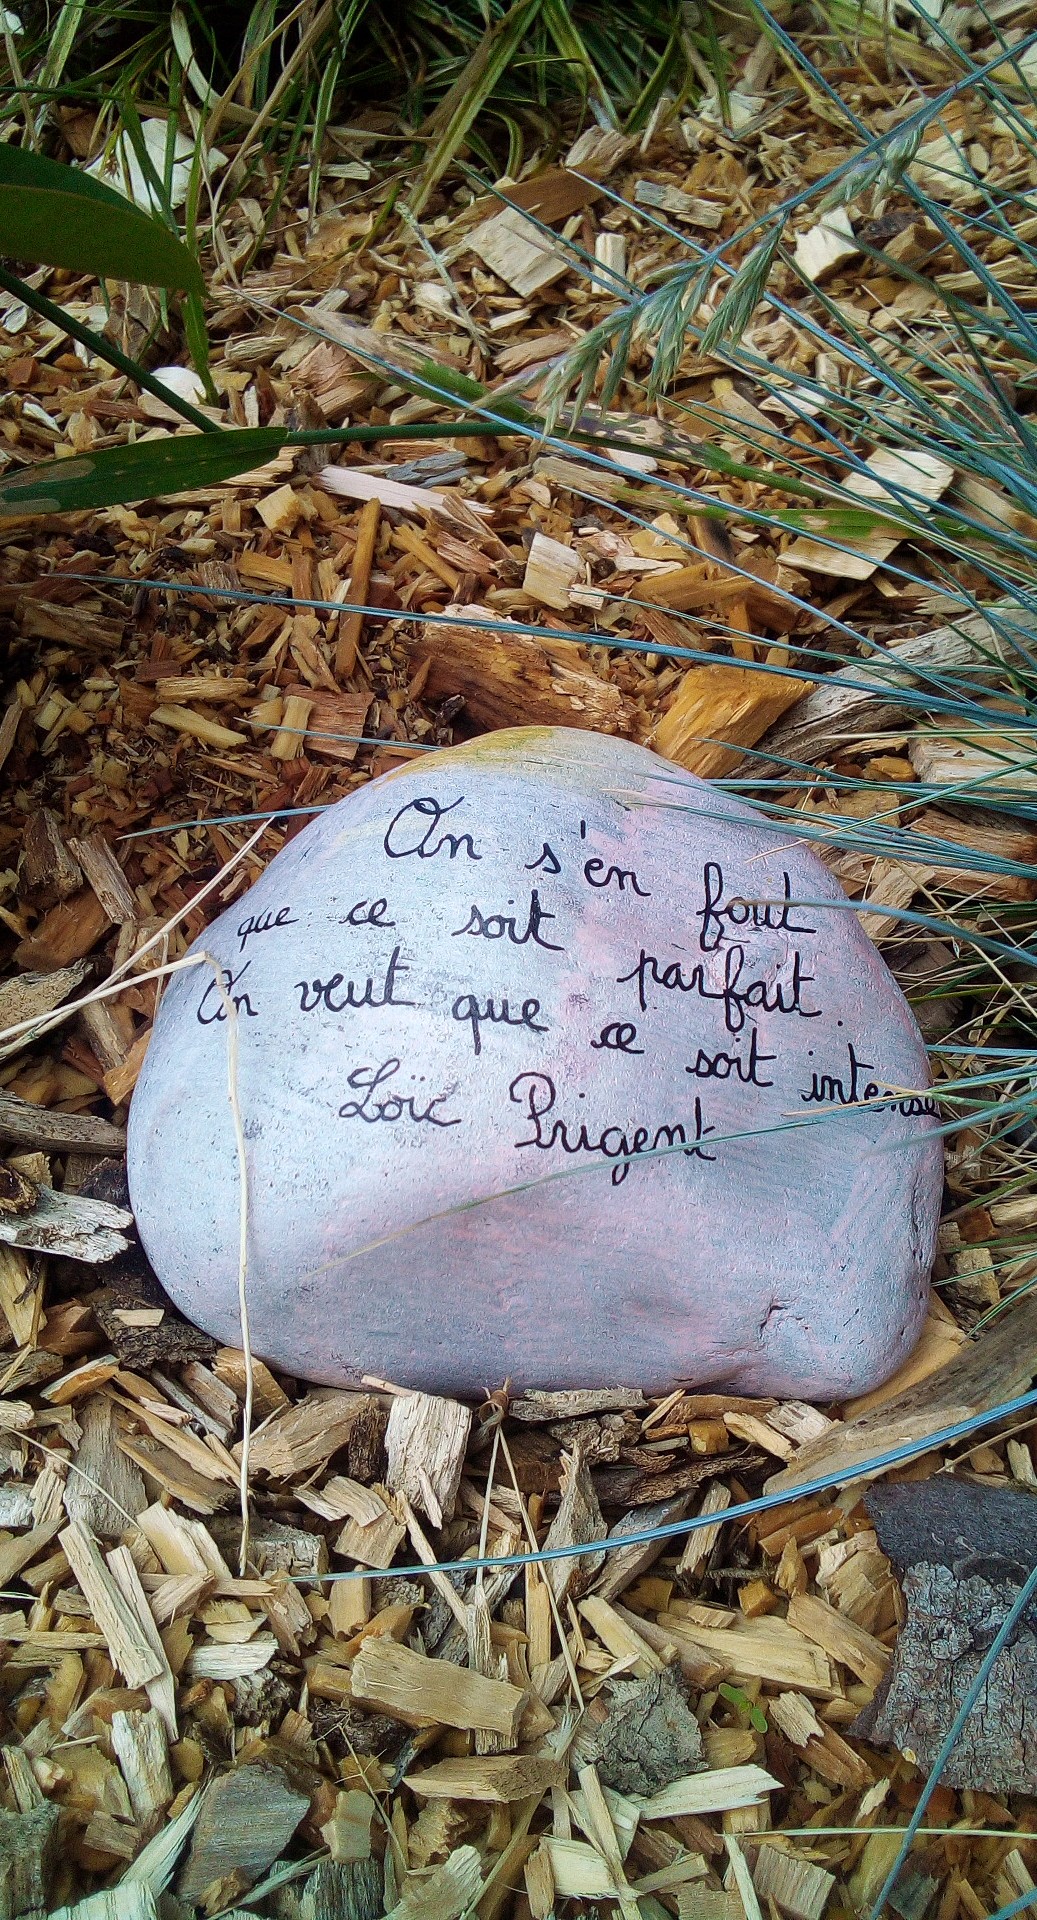 On s'en fout
que ce soit parfait.
On veut que ce soit intense
Loïc Prigent